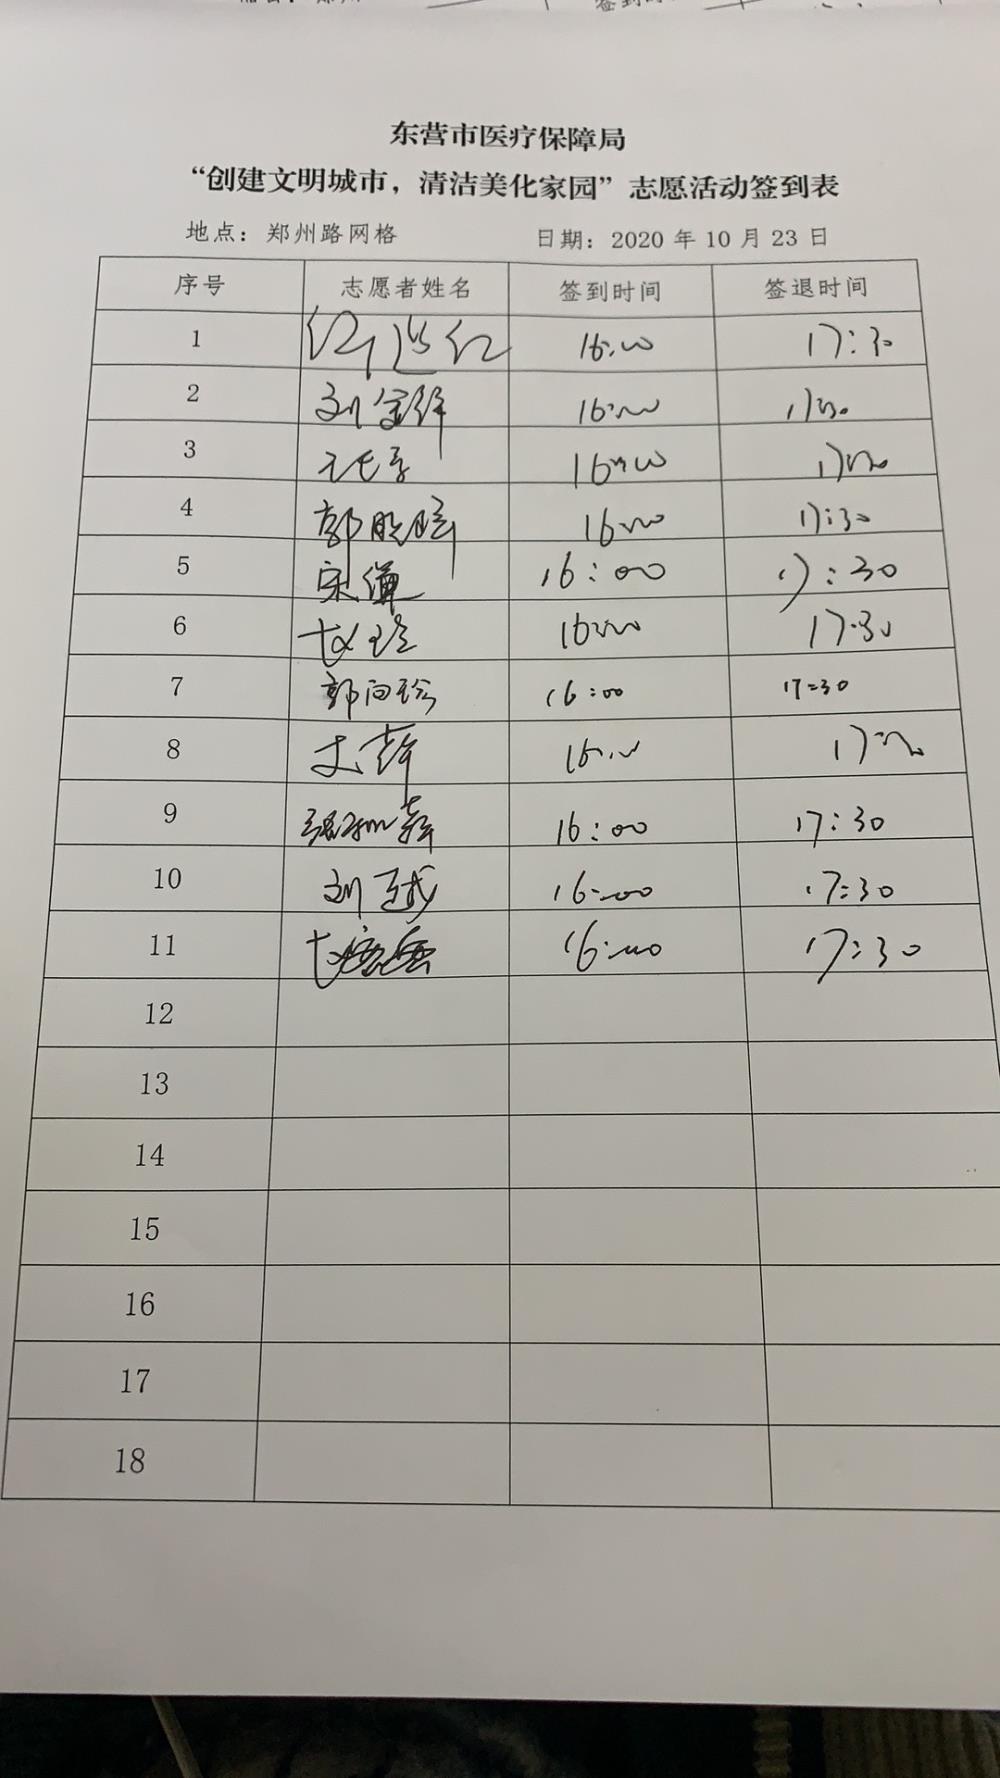 东营市医疗保障局
“创建文明城市，清洁美化家园”志愿活动签到表
地点：郑州路网格 日期：2020 年 10 月 23 日
序号 志愿者姓名 签到时间 签退时间
1 16:00 17:30
2 刘金锋 16:00 17:30
3 16:00 17:30
4 郭 16:00 17:30
5 宋 16:00 17:30
6 赵玲 16:00 17:30
7 郭向珍 16:00 17:30
8 16:00 17:30
9 16:00 17:30
10 刘越 16:00 17:30
11 赵 16:00 17:30
12
13
14
15
16
17
18